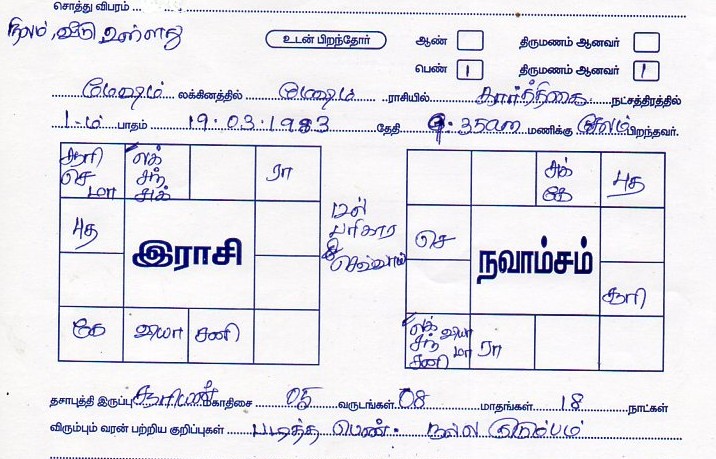 சொத்து விபரம்
நிலம், வீடு உள்ளது
உடன் பிறந்தோர் ஆண் திருமணம் ஆனவர்
பெண் 1 திருமணம் ஆனவர் 1
மேஷம் லக்கினத்தில் மேஷம் ராசியில் கார்த்திகை நட்சத்திரத்தில்
1-ம் பாதம் 19.03.1983 தேதி 9.35am மணிக்கு சேலம் பிறந்தவர்.
சூரி செ மா
லக் சந் சுக்
ரா
புத
இராசி
கே
வியா
சனி
பரிகார
செவ்வாய்
சுக் கே
புத
செ
நவாம்சம்
சூரி
லக் சந் சனி
வியா மா
ரா
தசாபுத்தி இருப்பு சூரியன் மகாதிசை 05 வருடங்கள் 08 மாதங்கள் 18 நாட்கள்
விரும்பும் வரன் பற்றிய குறிப்புகள் படித்த பெண். நல்ல குடும்பம்